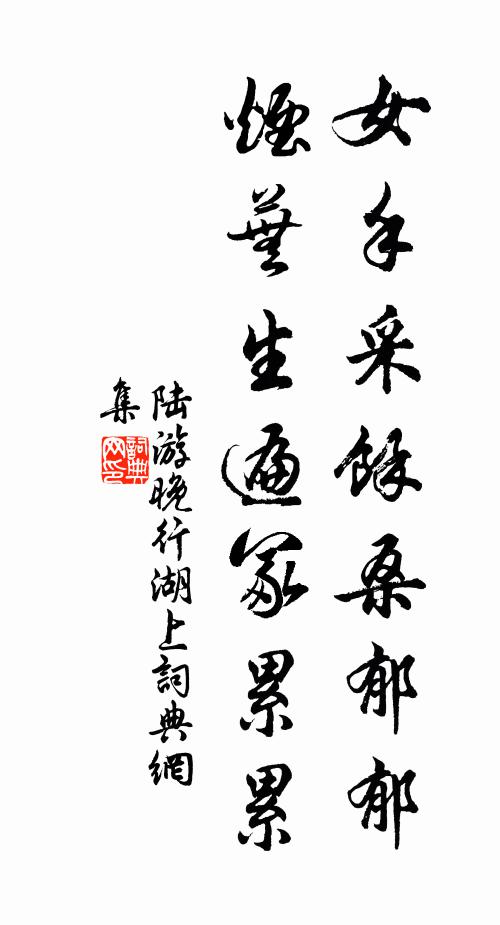 女手采餘桑郁郁
煙蕪生遍冢累累
陆游晚行湖上詞典網
集
詞典
网印